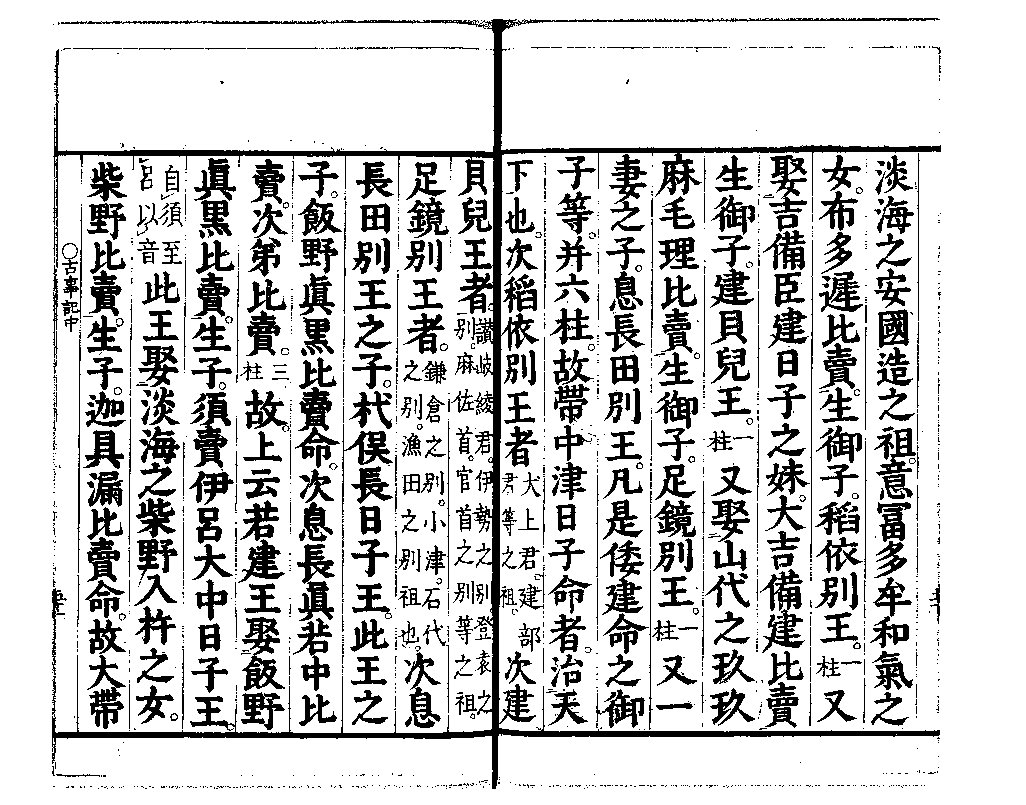 淡海之安國造之祖。意冨多牟和氣之
女。布多遲比賣。生御子。稻依別王。一柱又
娶吉備臣建日子之妹。大吉備建比賣
生御子。建貝兒王。一柱又娶山代之玖玖
麻毛理比賣。生御子。足鏡別王。一柱又一
妻之子。息長田別王。凡是倭建命之御
子等。并六柱。故帶中津日子命者。治天
下也。次稻依別王者犬上君。建部君等之祖。次建
貝兒王者。讃岐綾君。伊勢之別。登袁之別。麻佐首。宮首之別等之祖。
足鏡別王者。鎌倉之別。小津。石代之別。漁田之別祖也。次息
長田別王之子。杙俣長日子王。此王之
子。飯野眞黒比賣命。次息長眞若中比
賣。次弟比賣。三柱故。上云若建王娶飯野
眞黒比賣。生子。須賣伊呂大中日子王。
自須至呂以音此王娶淡海之柴野入杵之女。
柴野比賣。生子。迦具漏比賣命。故大帶
〇古事記中